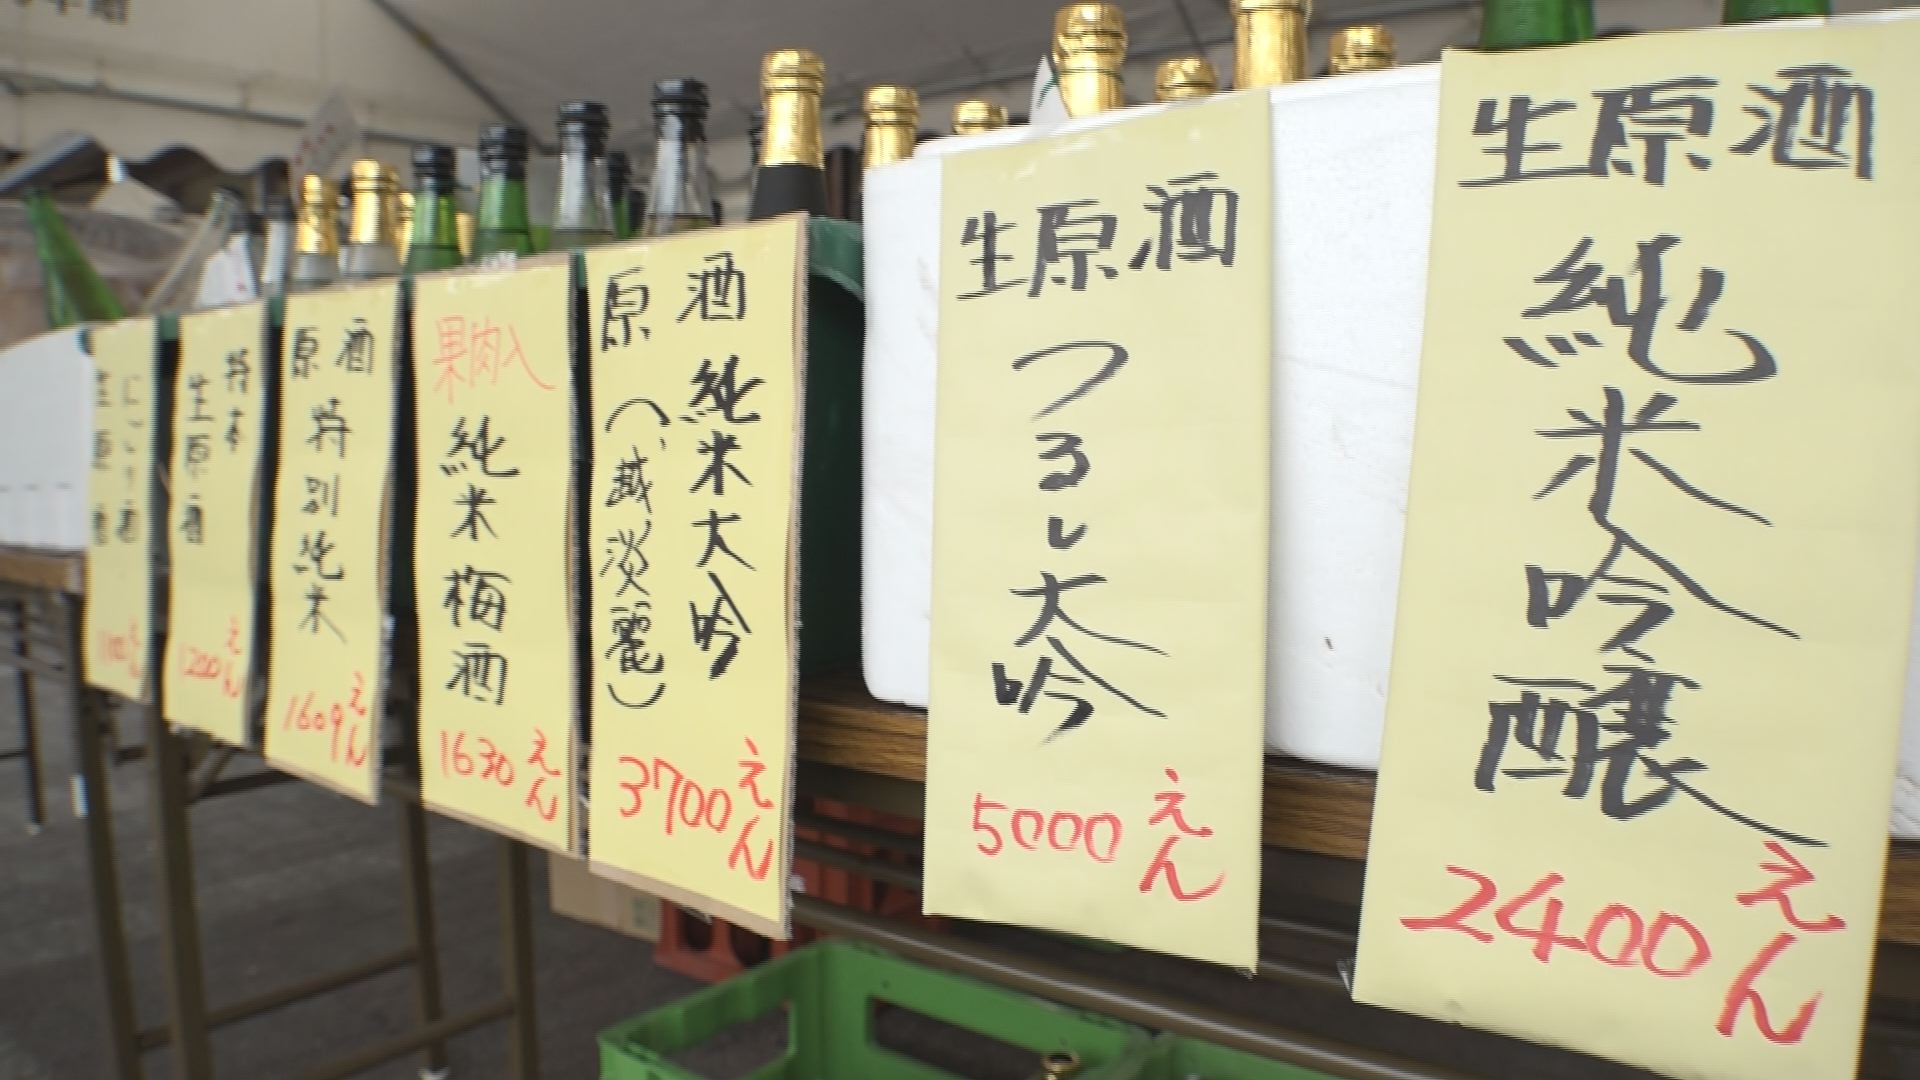 生原酒
純米吟醸
2400えん
生原酒
つるし大吟
5000えん
原酒
純米大吟
(越淡麗)
3700えん
果肉入
純米梅酒
1630えん
原酒
特別純米
1609えん
特本
生原酒
1200えん
にごり酒
生原酒